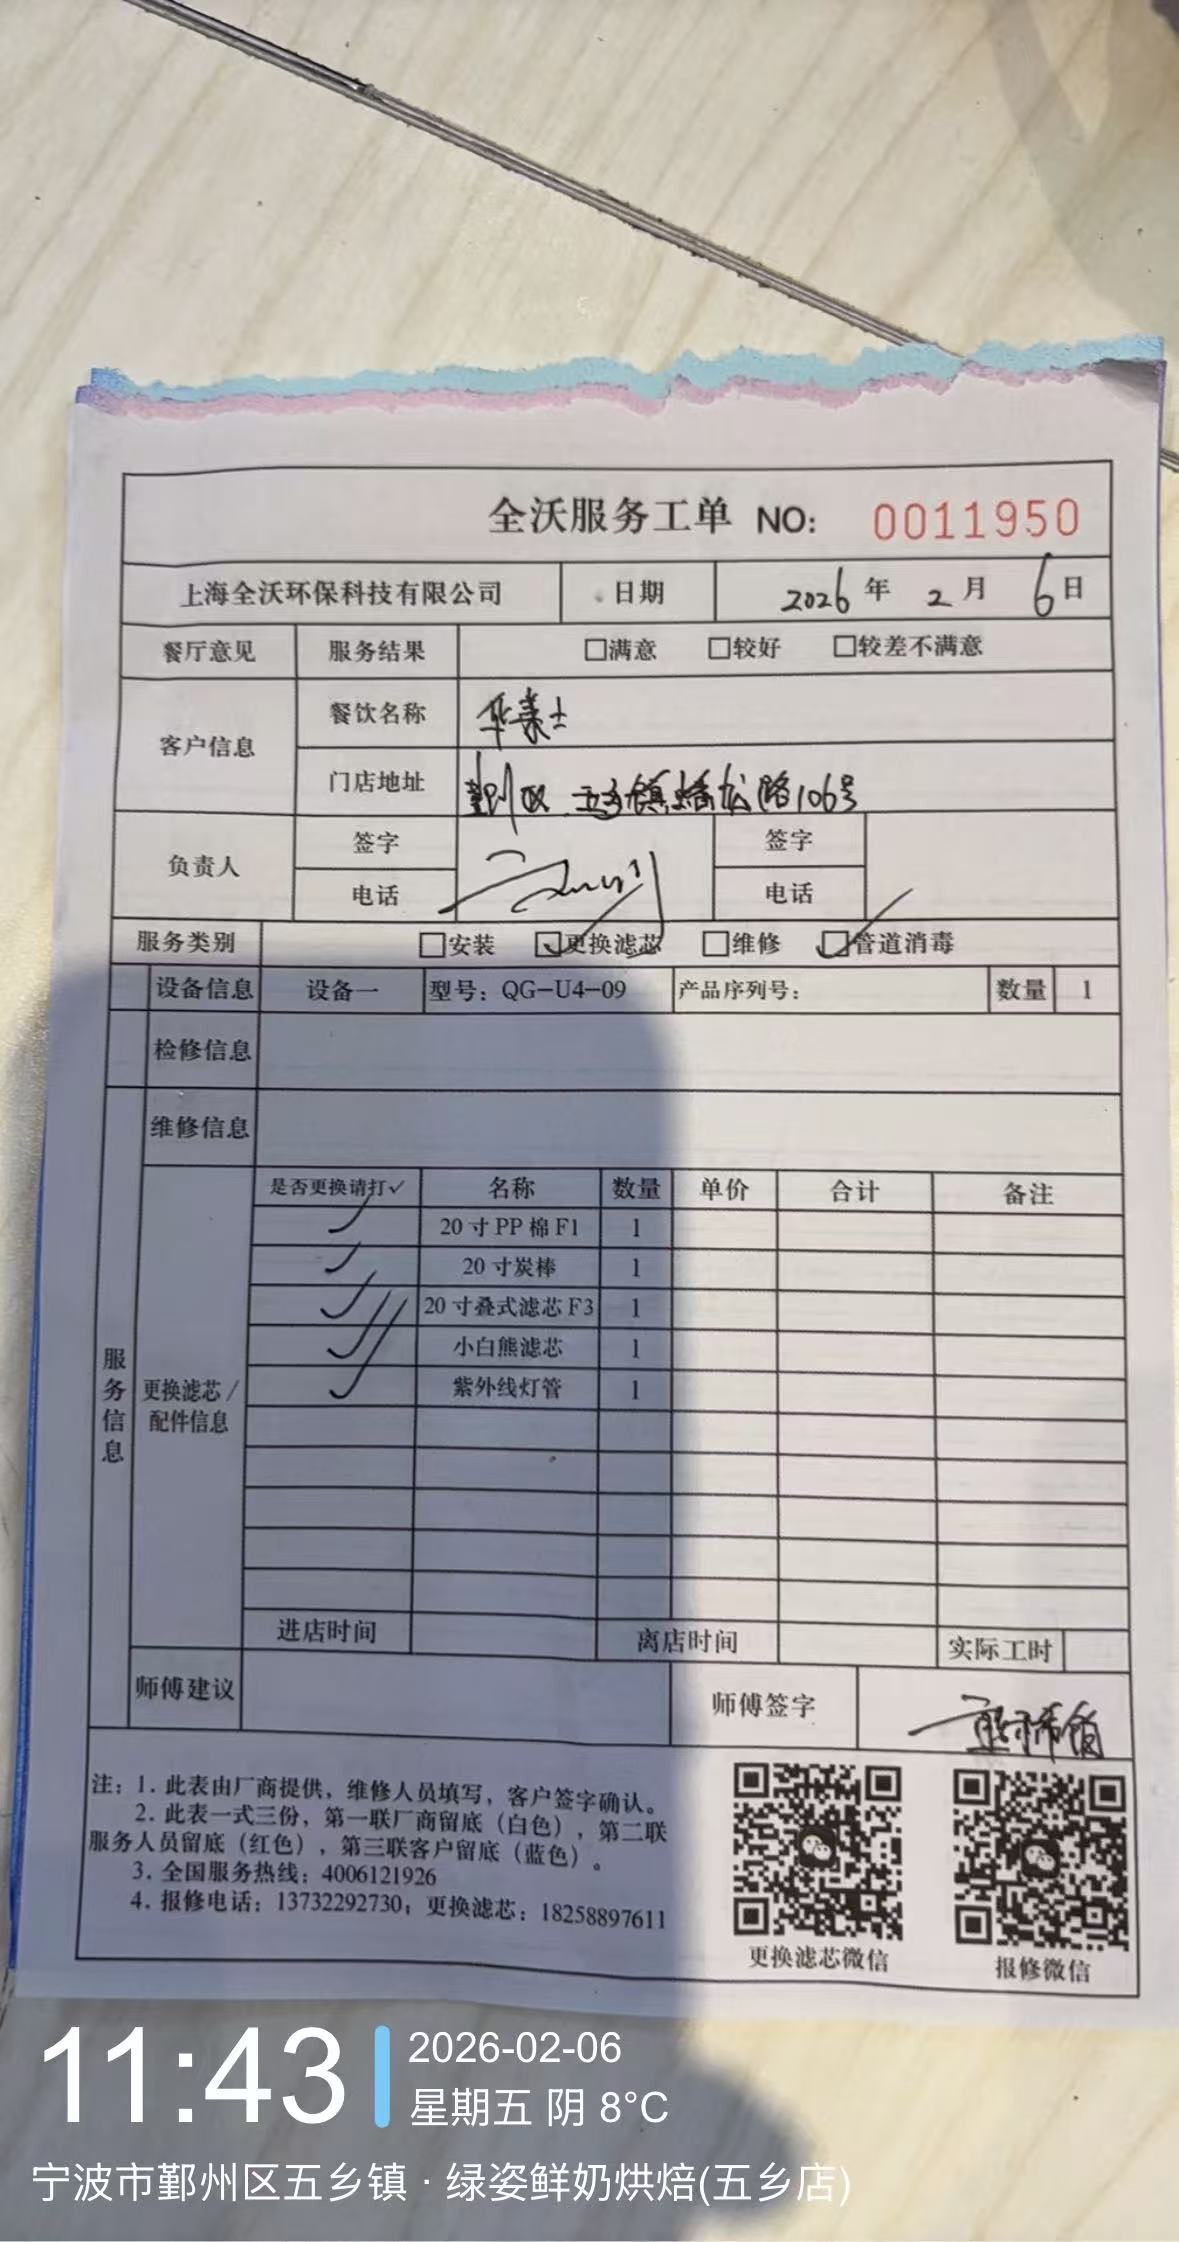 全沃服务工单 NO: 0011950
上海全沃环保科技有限公司 日期 2026年 2月 6日
餐厅意见 服务结果 □满意 □较好 □较差不满意
客户信息 餐饮名称 华莱士
门店地址 鄞州区五乡镇蟠松路106号
负责人 签字 签字
电话 电话
服务类别 □安装 ☑更换滤芯 □维修 ☑管道消毒
设备信息 设备一 型号：QG-U4-09 产品序列号： 数量 1
检修信息
维修信息
是否更换请打✓ 名称 数量 单价 合计 备注
✓ 20寸PP棉F1 1
✓ 20寸炭棒 1
✓ 20寸叠式滤芯F3 1
✓ 小白熊滤芯 1
✓ 紫外线灯管 1
服务信息
更换滤芯/
配件信息
进店时间 离店时间 实际工时
师傅建议 师傅签字
注：1. 此表由厂商提供，维修人员填写，客户签字确认。
2. 此表一式三份，第一联厂商留底（白色），第二联
服务人员留底（红色），第三联客户留底（蓝色）。
3. 全国服务热线：4006121926
4. 报修电话：13732292730；更换滤芯：18258897611
更换滤芯微信 报修微信
11:43 2026-02-06
星期五 阴 8°C
宁波市鄞州区五乡镇·绿姿鲜奶烘焙(五乡店)